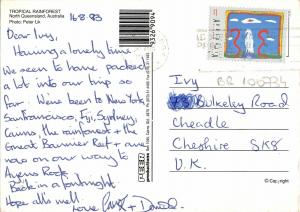 TROPICAL RAINFOREST
North Queensland, Australia
Photo: Peter Lik
16.8.93
Dear Ivy,
Having a lovely time
We seem to have packed
a lot into our trip so
far. We've been to New York
San Francisco, Fiji, Sydney,
Cairns, the rainforest + the
Great Barrier Reef + are
now on our way to
Ayers Rock.
Back in a fortnight.
Hope all's well.
Love
Ivy
Bulkeley Road
Cheadle
Cheshire SK8
U.K.
© Copyright